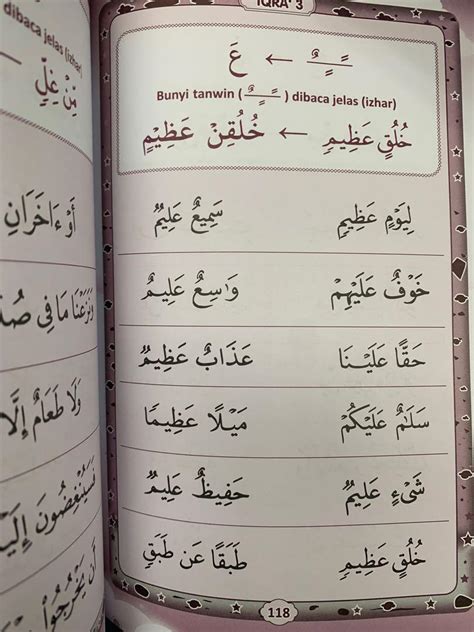 IQRA' 3
ـًـٍـٌ ← عَ
Bunyi tanwin ( ـًـٍـٌ ) dibaca jelas (izhar)
خُلُقٍ عَظِيمٍ ← خُلُقِنْ عَظِيْمٍ
لِيَوْمٍ عَظِيمٍ سَمِيعٌ عَلِيمٌ
خَوْفٌ عَلَيْهِمْ وَٰسِعٌ عَلِيمٌ
حَقًّا عَلَيْنَا عَذَابٌ عَظِيمٌ
سَلَٰمٌ عَلَيْكُمْ مَيْلًا عَظِيمًا
شَىْءٍ عَلِيمٌ حَفِيظٌ عَلِيمٌ
خُلُقٍ عَظِيمٍ طَبَقًا عَن طَبَقٍ
118
dibaca jelas (izhar)
مِّنْ غِلٍّ
أَوْ ءَاخَرَانِ
وَنَزَعْنَا مَا فِى
وَلَا طَعَامٌ إِلَّا
فَسَيُنْغِضُونَ
أَن يَخْرُجُوا۟